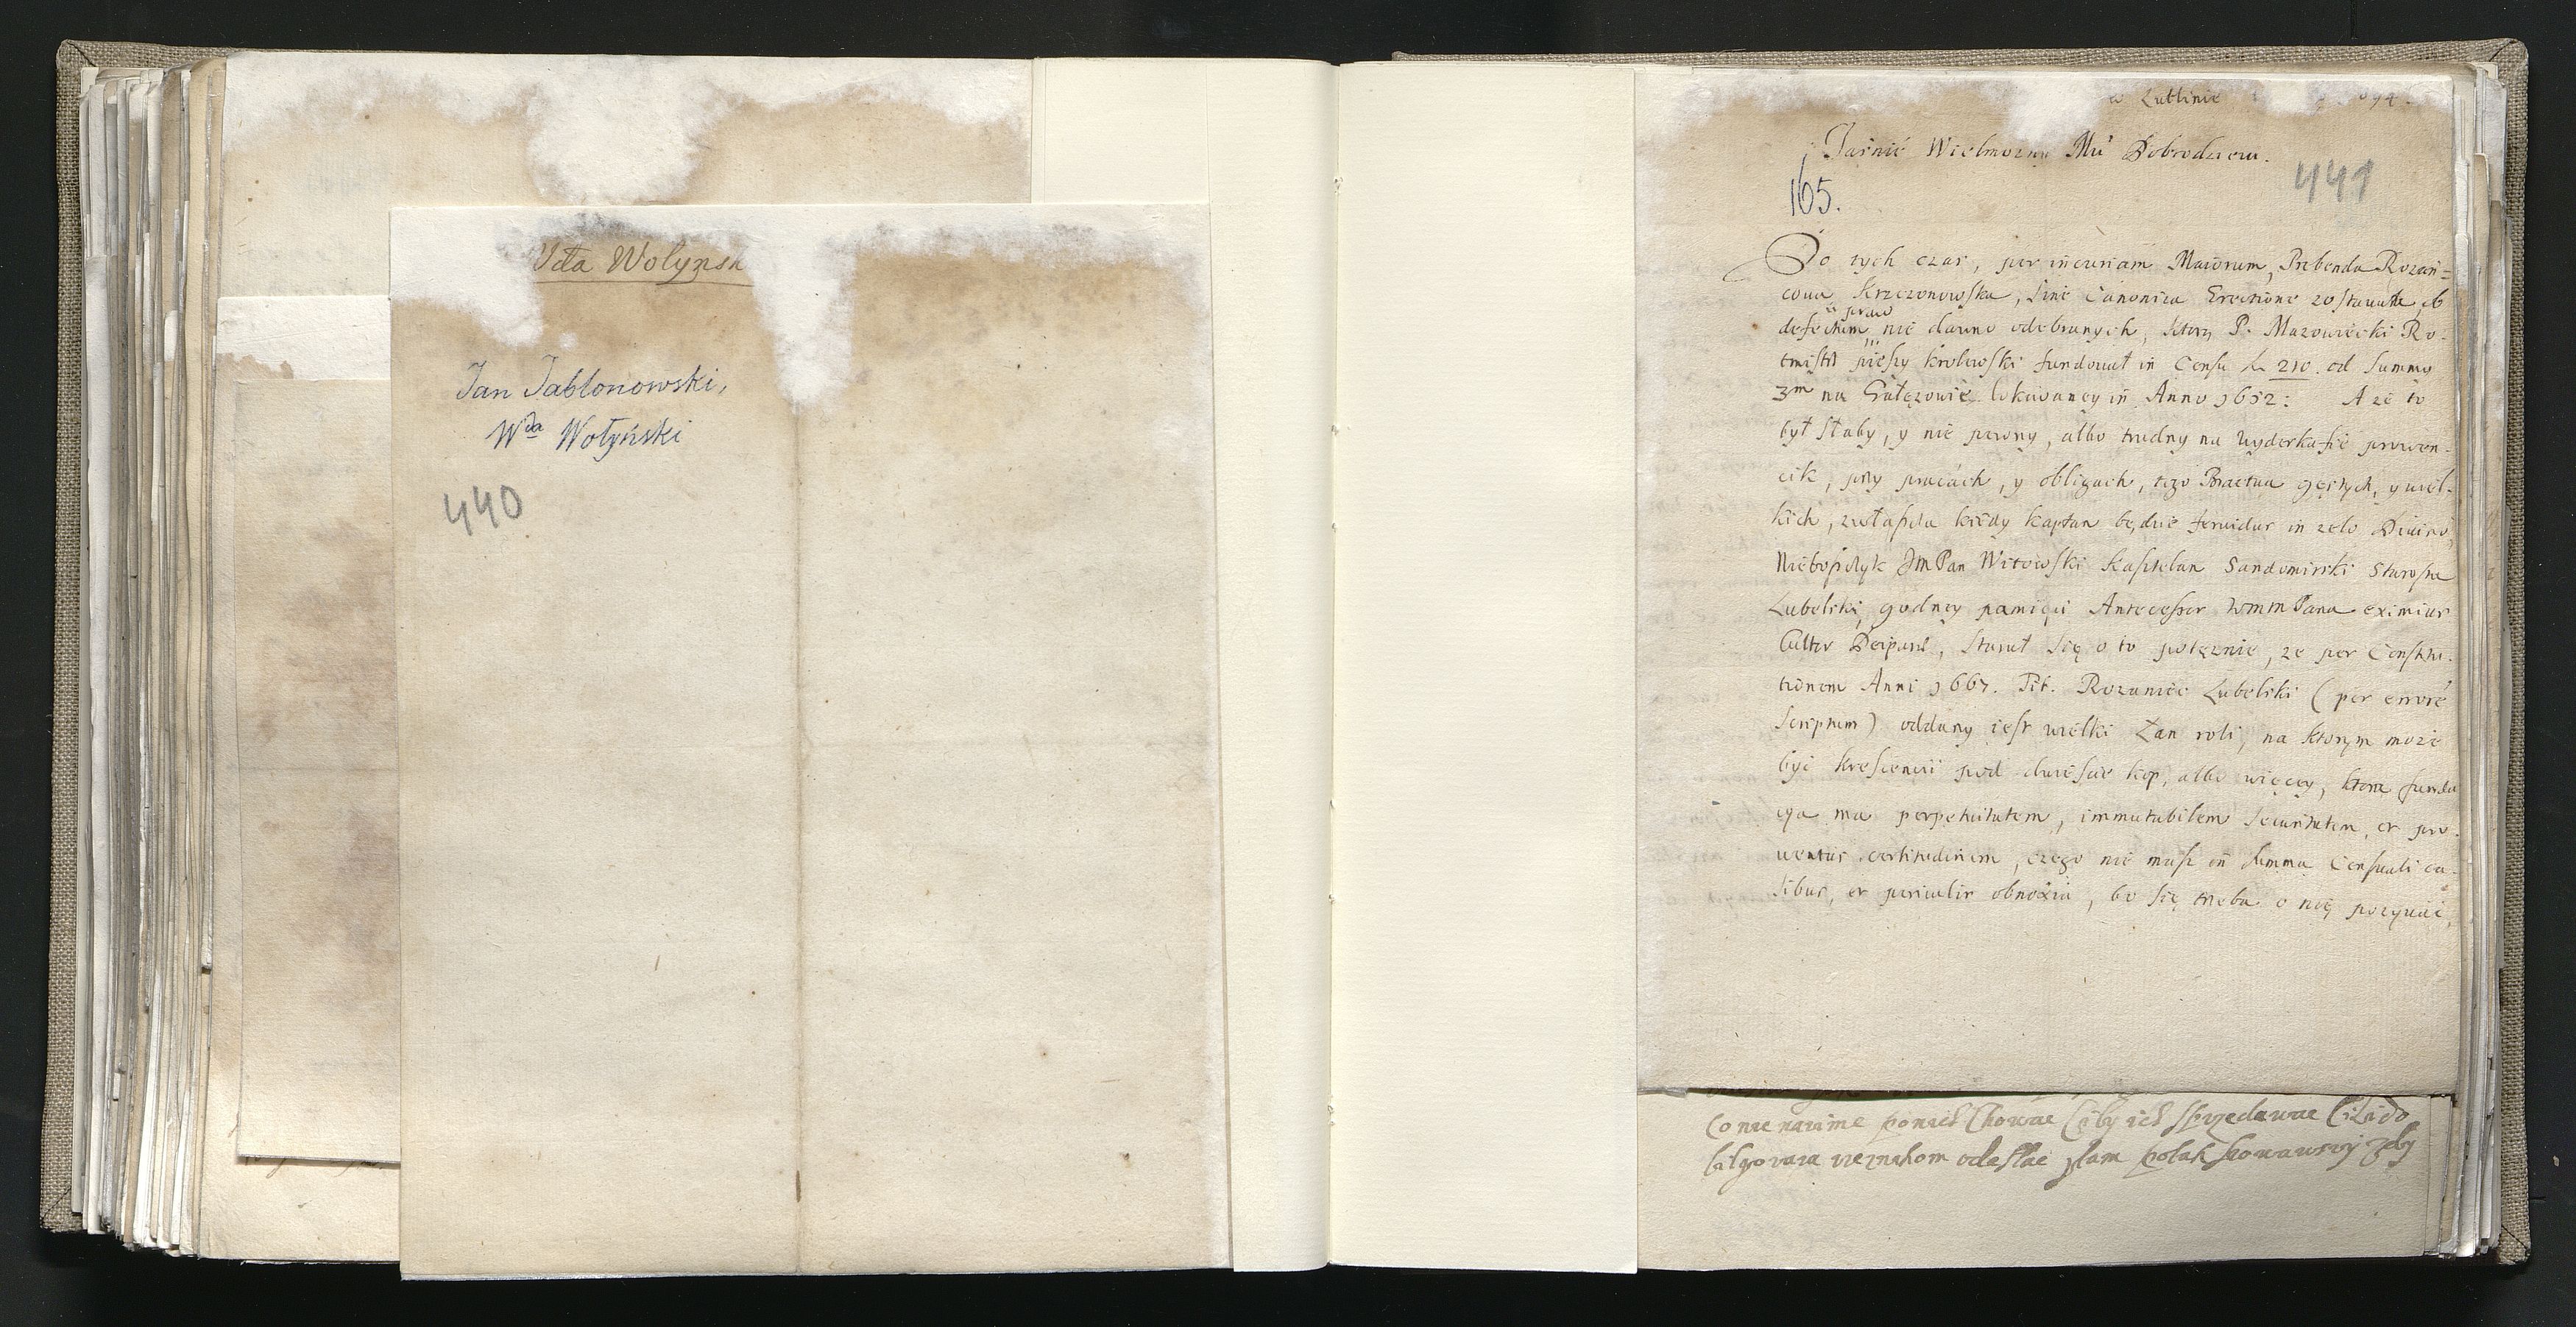 Wda Wolynsk
Jan Jabłonowski,
Wda Wołyński
440
w Lublinie
Jasnie Wielmozny Mći Dobrodzieiu.
441
165.
Do tych czas, per incuriam Maiorum, Prebenda Rozan=
cowa Krzczonowska, sine Canonica Erectione zostawała, ob
defectum praw nie dawno odebranych, ktory P. Mazowiecki Ro-
tmistrz pieszy krolewski fundował in Censu 210. od Summy
3m na Gałęzowie lokowaney in Anno 1652: A ze to
był słaby, y nie pewny, albo trudny na Wyderkafie prowen-
cik, przy pracach, y obligach, tego Bractwa gęstych, y wiel-
kich, zwłaszcza kiedy kapłan będzie fervidus in zelo Divino,
Nieboszczyk JmPan Witowski Kasztelan Sandomirski Starosta
Lubelski, godney pamięci Antecessor WmmPana eximius
Cultor Deiparæ, starał się o to potęznie, ze per Constitu-
tionem Anni 1667. Tit. Rozaniec Lubelski (per errorē
scriptum) oddany iest wielki Łan roli, na ktorym moze
byc krescencii pod dwiescie kop, albo więcey, ktora funda
cya ma perpetuitatem, immutabilem securitatem, et pro-
uentus certitudinem, czego nie masz in summa Censuali ca-
sibus, et periculis obnoxia, bo się trzeba o nię pozywać,